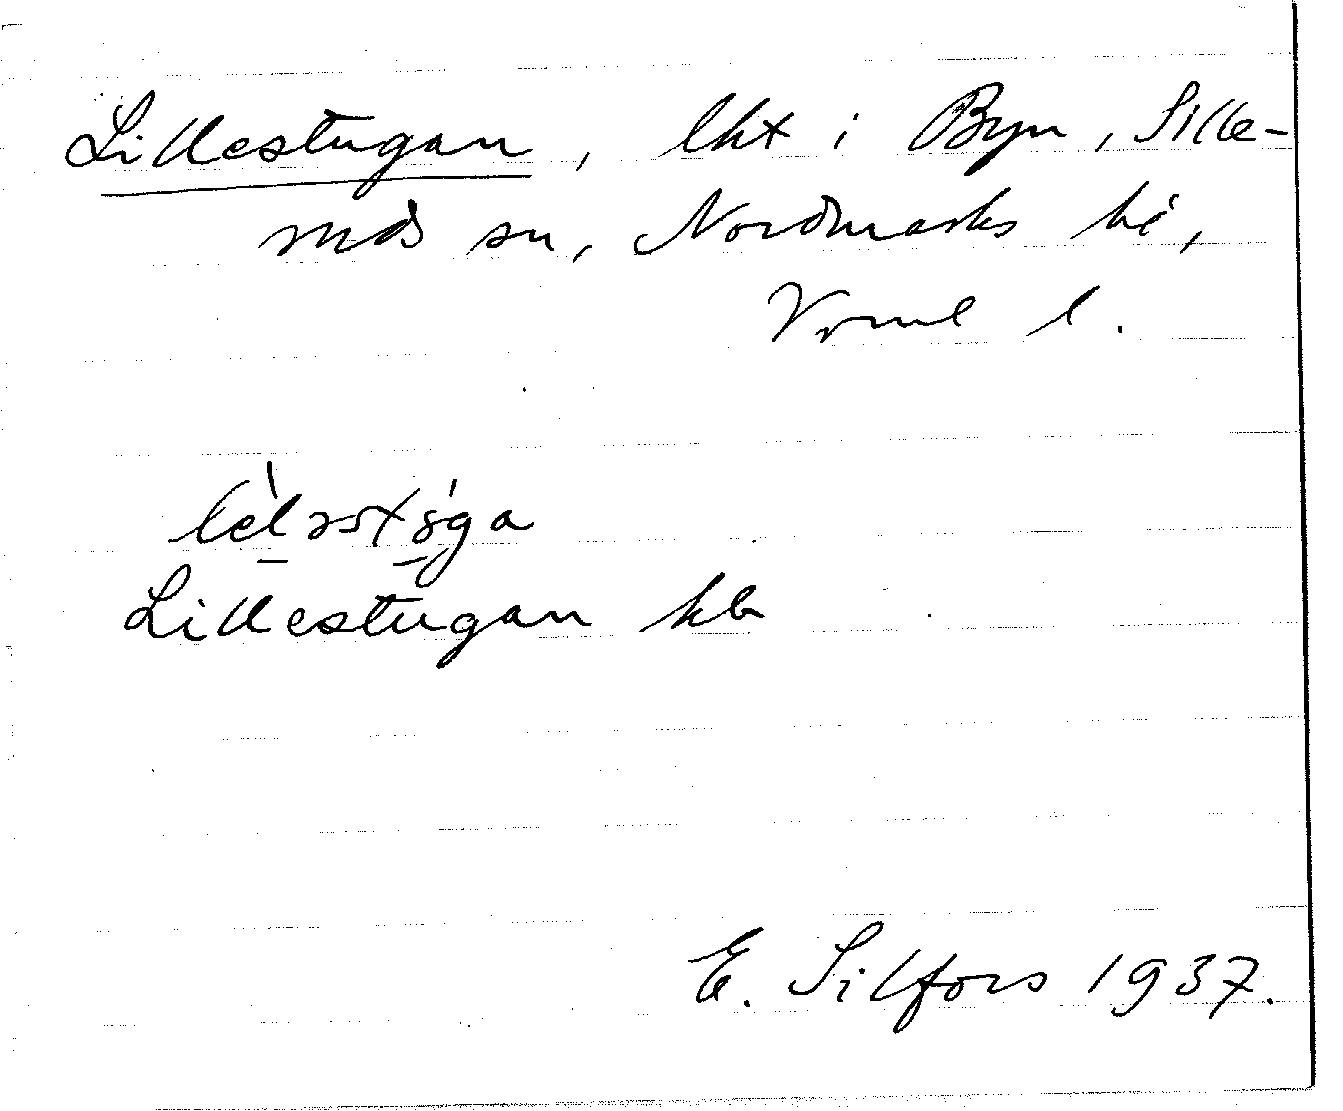 Lillestugan, lht i Byn, Sille-
ruds sn, Nordmarks hd,
Vrml l.
lèləstǿga
Lillestugan kb
E. Silfors 1937.